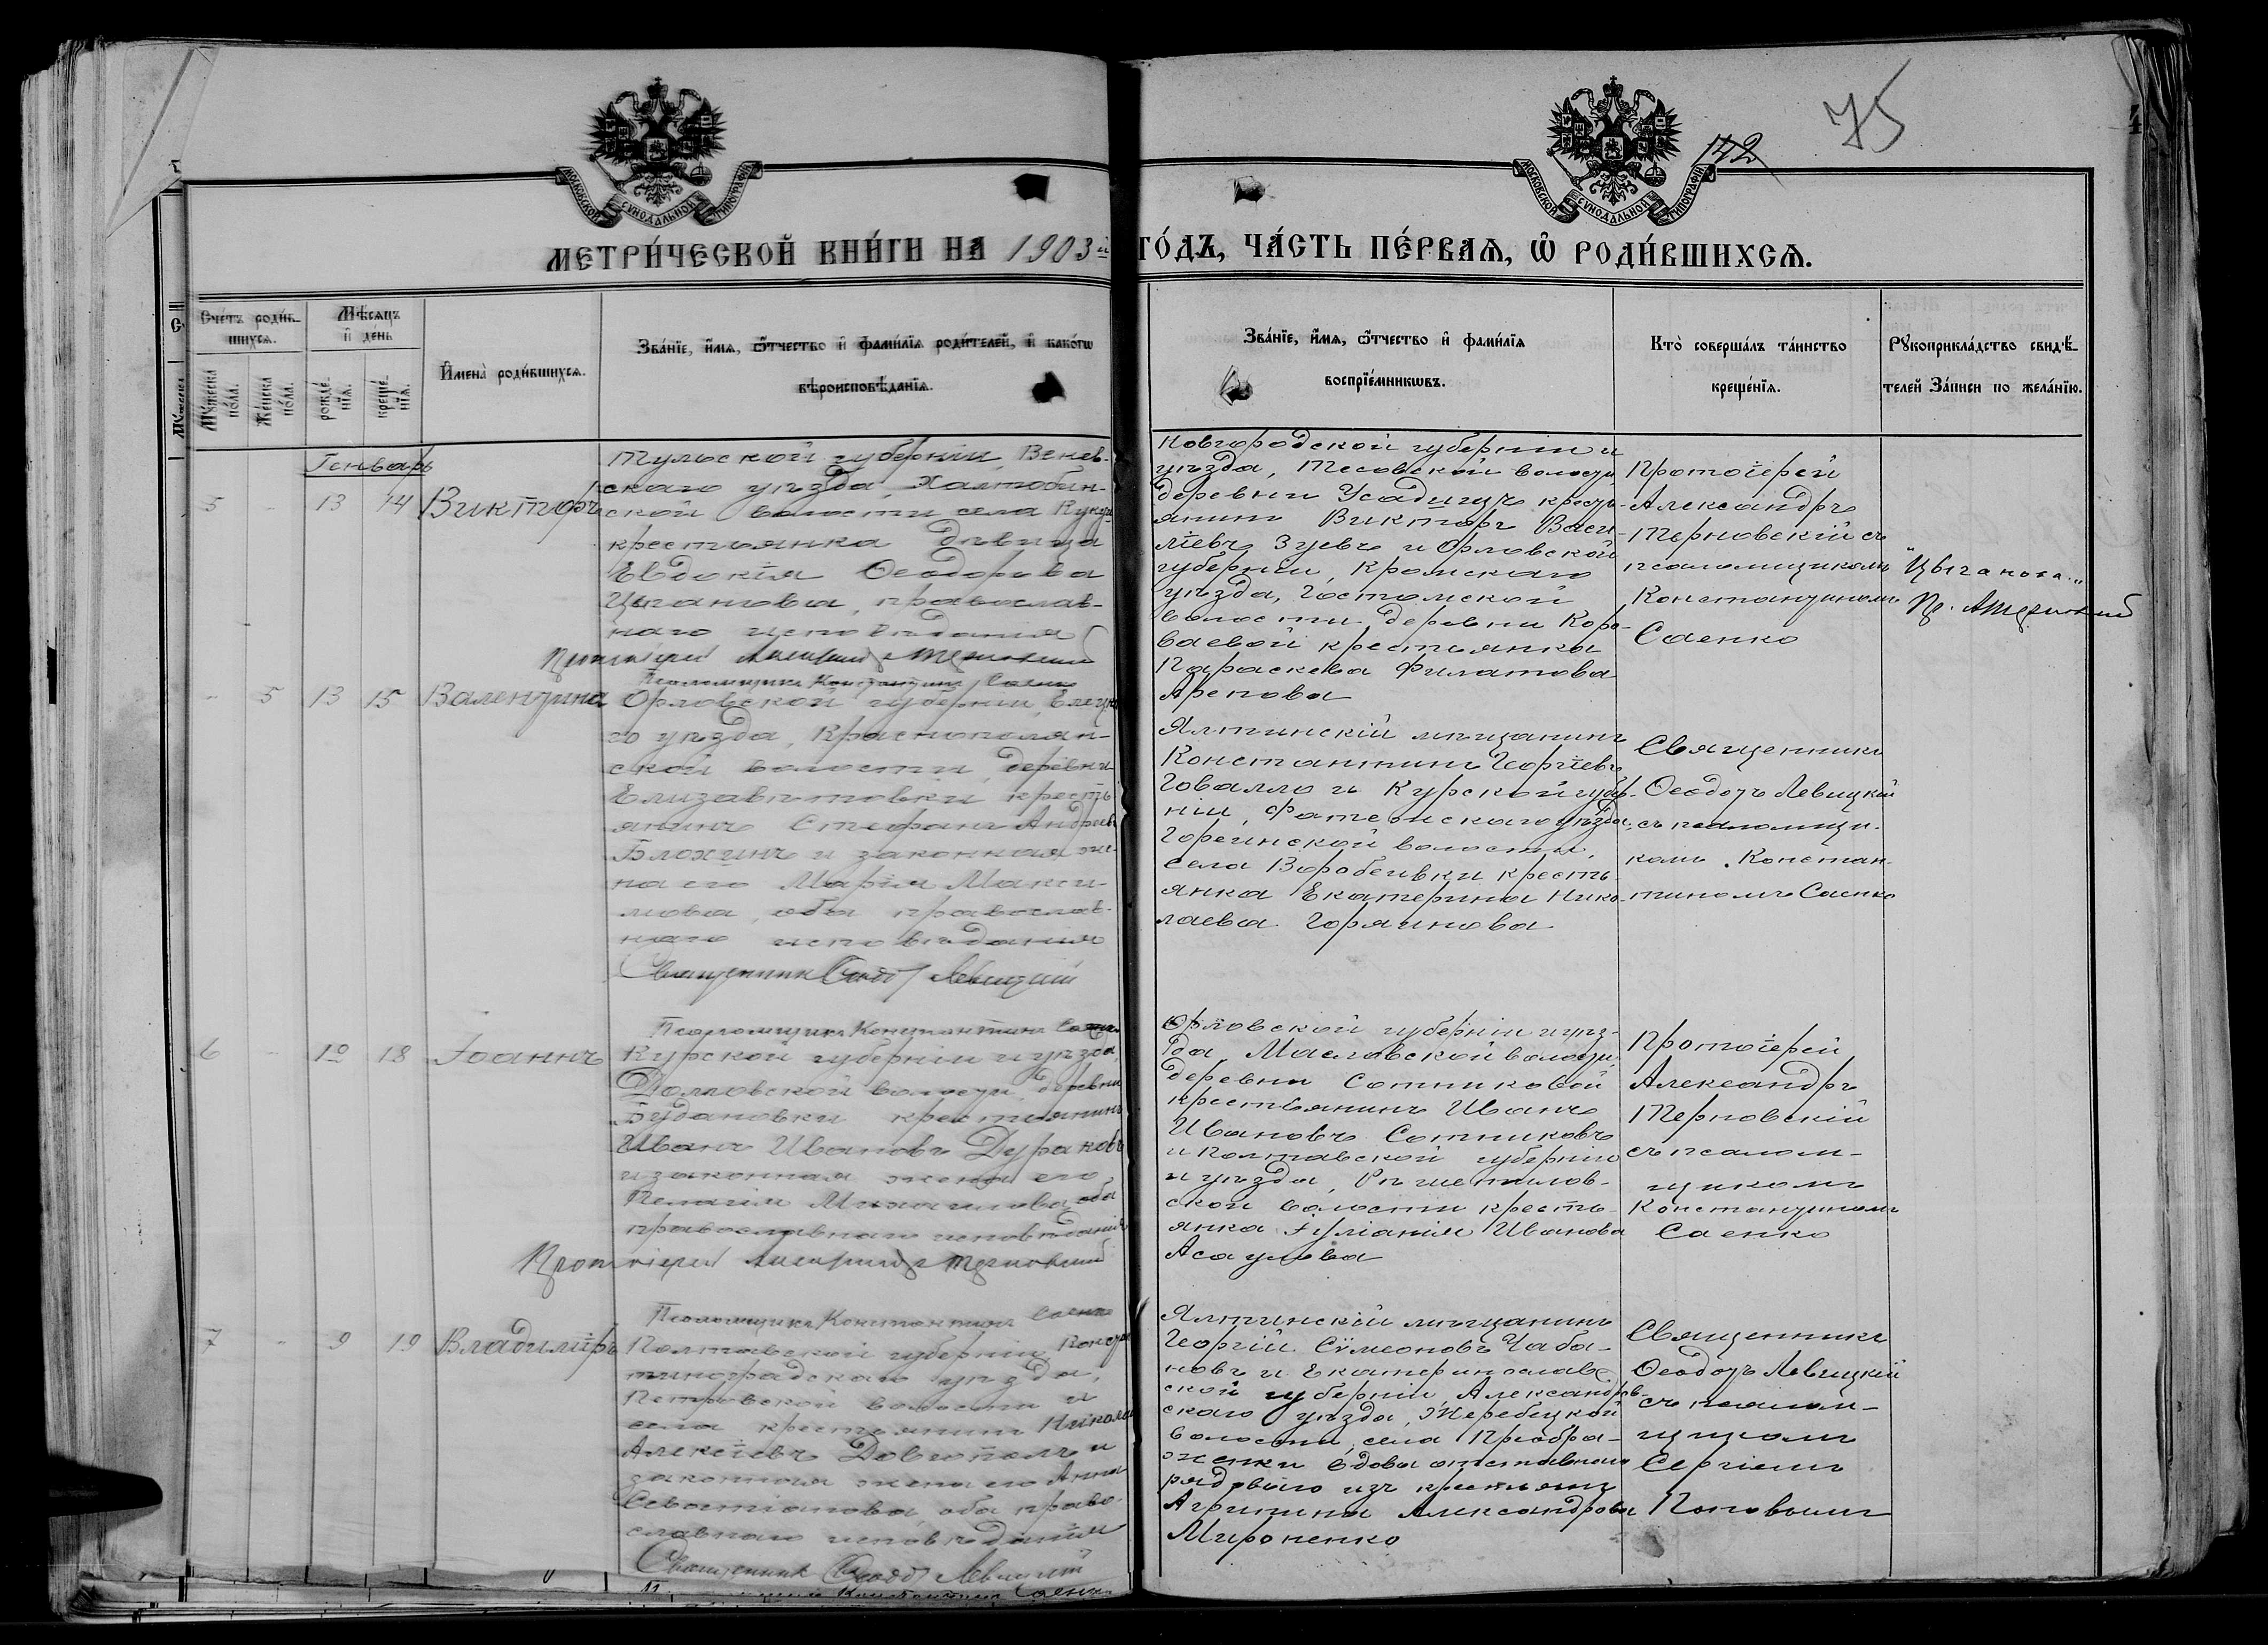 75
142
МОСКОВСКОЙ СѴНОДАЛЬНОЙ ТИПОГРАФІИ
МОСКОВСКОЙ СѴНОДАЛЬНОЙ ТИПОГРАФІИ
МЕТРИ́ЧЕСКОЙ КНИ́ГИ НА 1903й ГО́ДЪ, ЧА́СТЬ ПЕ́РВАѦ, Ѡ РОДИ́ВШИХСѦ.
Счетъ роди́в-
шихсѧ.
Мѣ́сѧцъ
и҆ де́нь
Мꙋжеска по́ла.
Женска по́ла.
рожде́-
нїѧ.
креще́-
нїѧ.
И҆мена̀ роди́вшихсѧ.
Зва́нїе, и҆́мѧ, ѻ҆́тчество и҆ фами́лїѧ роди́телей, и҆ како́гѡ
вѣроисповѣ́данїѧ.
Зва́нїе, и҆́мѧ, ѻ҆́тчество и҆ фами́лїѧ
воспрїе́мникѡвъ.
Кто̀ соверша́лъ та́инство
креще́нїѧ.
Рꙋкоприкла́дство свидѣ́-
телей за́писи по жела́нїю.
Генварь
5 - 13 14 Викторъ
Тульской губерніи, Венев-
скаго уѣзда, Халтобин-
ской волости села
крестьянка девица
Евдокія Ѳеодорова
Цыганова, православ-
наго исповѣданія
Протоіерей Александръ Терновскій
Псаломщикъ Константинъ Саенко
Новгородской губерніи и
уѣзда, Тесовской волости
деревни Усадищъ кресть-
янинъ Викторъ Васи-
ліевъ Зуевъ и Орловской
губерніи, Кромскаго
уѣзда, Гостомской
волости, деревни Коро-
ваевой крестьянка
Параскева Филатова
Арепова
Протоіерей
Александръ
Терновскій съ
псаломщикомъ
Константиномъ
Саенко
"Цыганова"
Пр. А Терновскій
- 5 13 15 Валентина
Орловской губерніи, Елецка
го уѣзда, Краснополян-
ской волости, деревни
Елизаветовки кресть
янинъ Стефанъ Андреевъ
Блохинъ и законная же-
на его Марія Макси-
мова, оба православ-
наго исповѣданія
Священникъ Ѳеодотъ Левицкій
Псаломщикъ Константинъ Саенко
Ялтинскій мѣщанинъ
Константинъ Георгіевъ
Говалло и Курской губер-
ніи, Фатежскаго уѣзда,
села Воробьевки кресть-
янка Екатерина Нико-
лаева Горяинова
Священникъ
Ѳеодотъ Левицкій
съ псаломщи-
комъ Констан-
тиномъ Саенко
6 - 10 18 Іоаннъ
Курской губерніи и уѣзда,
волости, деревни
Будановки крестьянинъ
Иванъ Ивановъ Дураковъ
и законная жена его
Пелагія Михаилова, оба
православнаго исповѣданія
Протоіерей Александръ Терновскій
Псаломщикъ Константинъ Саенко
Орловской губерніи и уѣз-
да, Масловской волости,
деревни Сотниковой
крестьянинъ Иванъ
Ивановъ Сотниковъ
и Полтавской губерніи
и уѣзда, Рѣшетилов-
ской волости кресть-
янка Іуліанія Иванова
Асаулова
Протоіерей
Александръ
Терновскій
съ псалом-
щикомъ
Константиномъ
Саенко
7 - 9 19 Владиміръ
Полтавской губерніи Констан
тиноградскаго уѣзда,
Петровской волости и
села крестьянинъ Николай
Алексіевъ Довгополъ и
законная жена его Анна
Севастіанова, оба право-
славнаго исповѣданія
Священникъ Ѳеодотъ Левицкій
Константинъ Саенко
Ялтинскій мѣщанинъ
Георгій Сѵмеоновъ Чаба-
новъ и Екатеринослав-
ской губерніи, Александров-
скаго уѣзда, Жеребецкой
волости, села Преобра-
женки вдова отставнаго
рядового изъ крестьянъ
Агрипина Александрова
Мироненко
Священникъ
Ѳеодотъ Левицкій
съ псалом-
щикомъ
Сергіемъ
Поповымъ